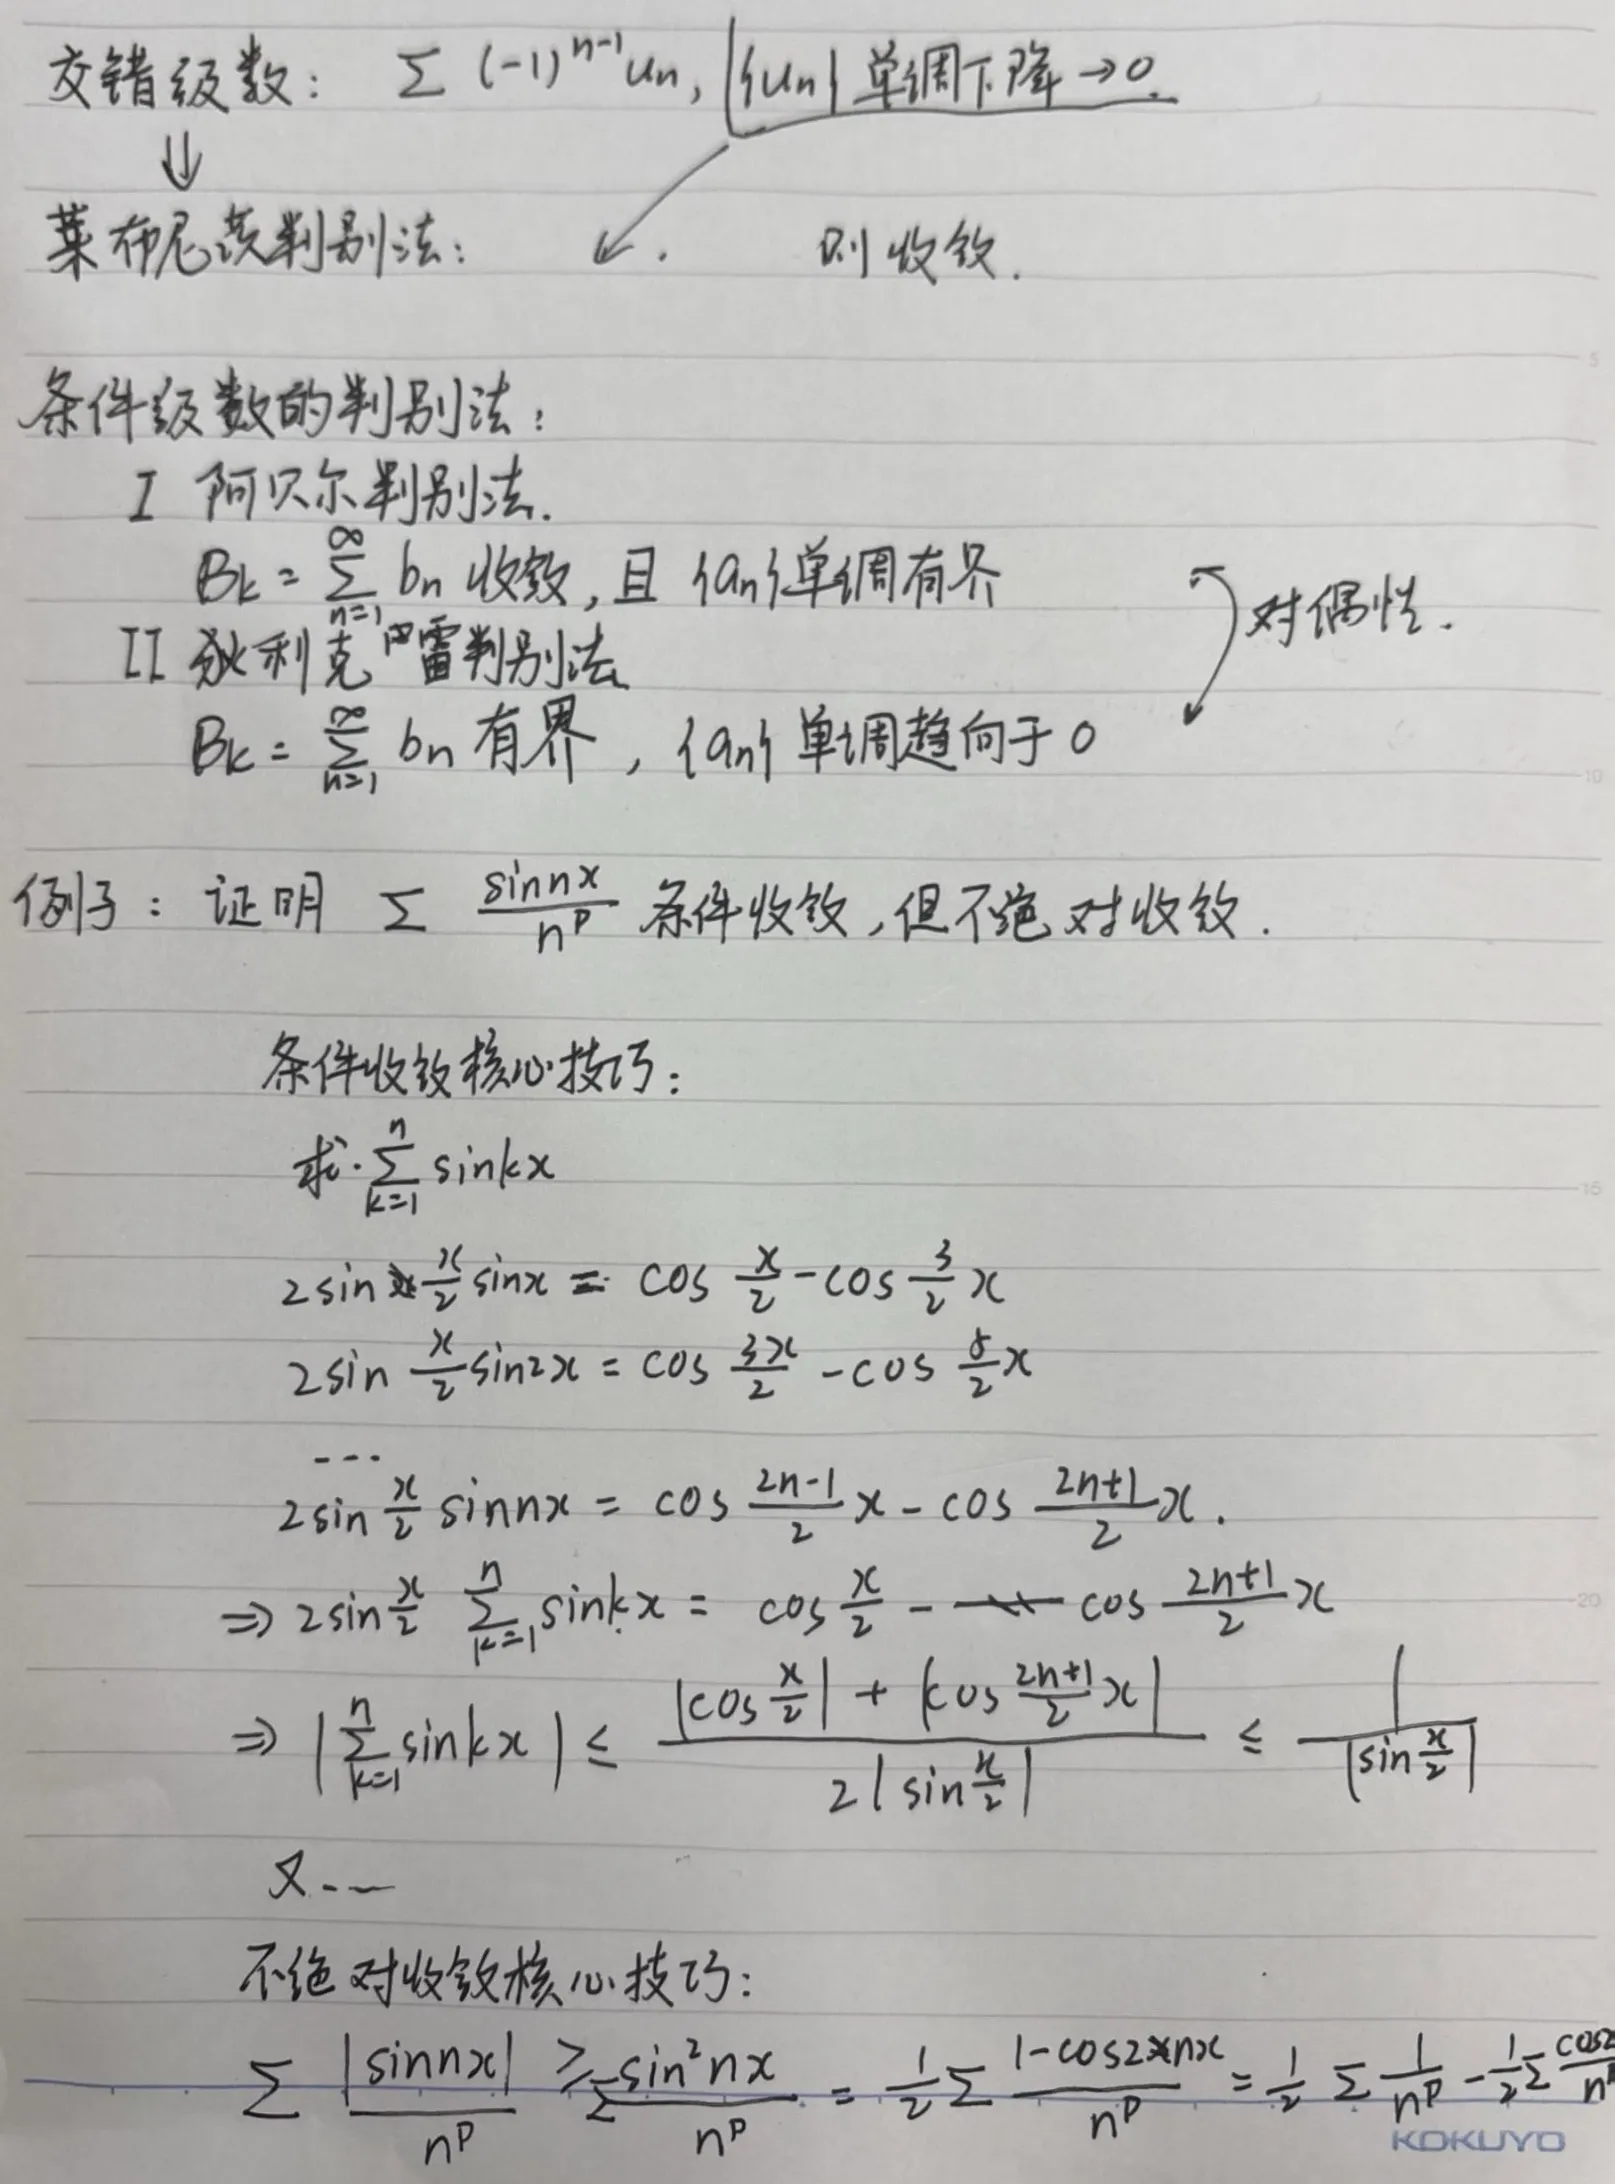 交错级数: Σ (-1)^{n-1} u_n, {u_n} 单调下降→0.
⇓
莱布尼茨判别法: . 则收敛.
条件级数的判别法:
I 阿贝尔判别法.
B_k = \sum_{n=1}^{∞} b_n 收敛, 且 {a_n}单调有界
对偶性.
II 狄利克雷判别法
B_k = \sum_{n=1}^{∞} b_n 有界, {a_n} 单调趋向于 0
例子: 证明 Σ \frac{sinnx}{n^p} 条件收敛, 但不绝对收敛.
条件收敛核心技巧:
求 \sum_{k=1}^{n} sinkx
2sin \frac{x}{2} sinx = cos \frac{x}{2} - cos \frac{3}{2} x
2sin \frac{x}{2} sin2x = cos \frac{3x}{2} - cos \frac{5}{2} x
...
2sin \frac{x}{2} sinnx = cos \frac{2n-1}{2} x - cos \frac{2n+1}{2} x.
⇒ 2sin \frac{x}{2} \sum_{k=1}^{n} sinkx = cos \frac{x}{2} - cos \frac{2n+1}{2} x
⇒ |\sum_{k=1}^{n} sinkx| ≤ \frac{|cos \frac{x}{2}| + |cos \frac{2n+1}{2} x|}{2|sin \frac{x}{2}|} ≤ \frac{1}{|sin \frac{x}{2}|}
又...
不绝对收敛核心技巧:
Σ \frac{|sinnx|}{n^p} ≥ Σ \frac{sin^2 nx}{n^p} = \frac{1}{2} Σ \frac{1-cos2nx}{n^p} = \frac{1}{2} Σ \frac{1}{n^p} - \frac{1}{2} Σ \frac{cos2}{n^p}
KOKUYO